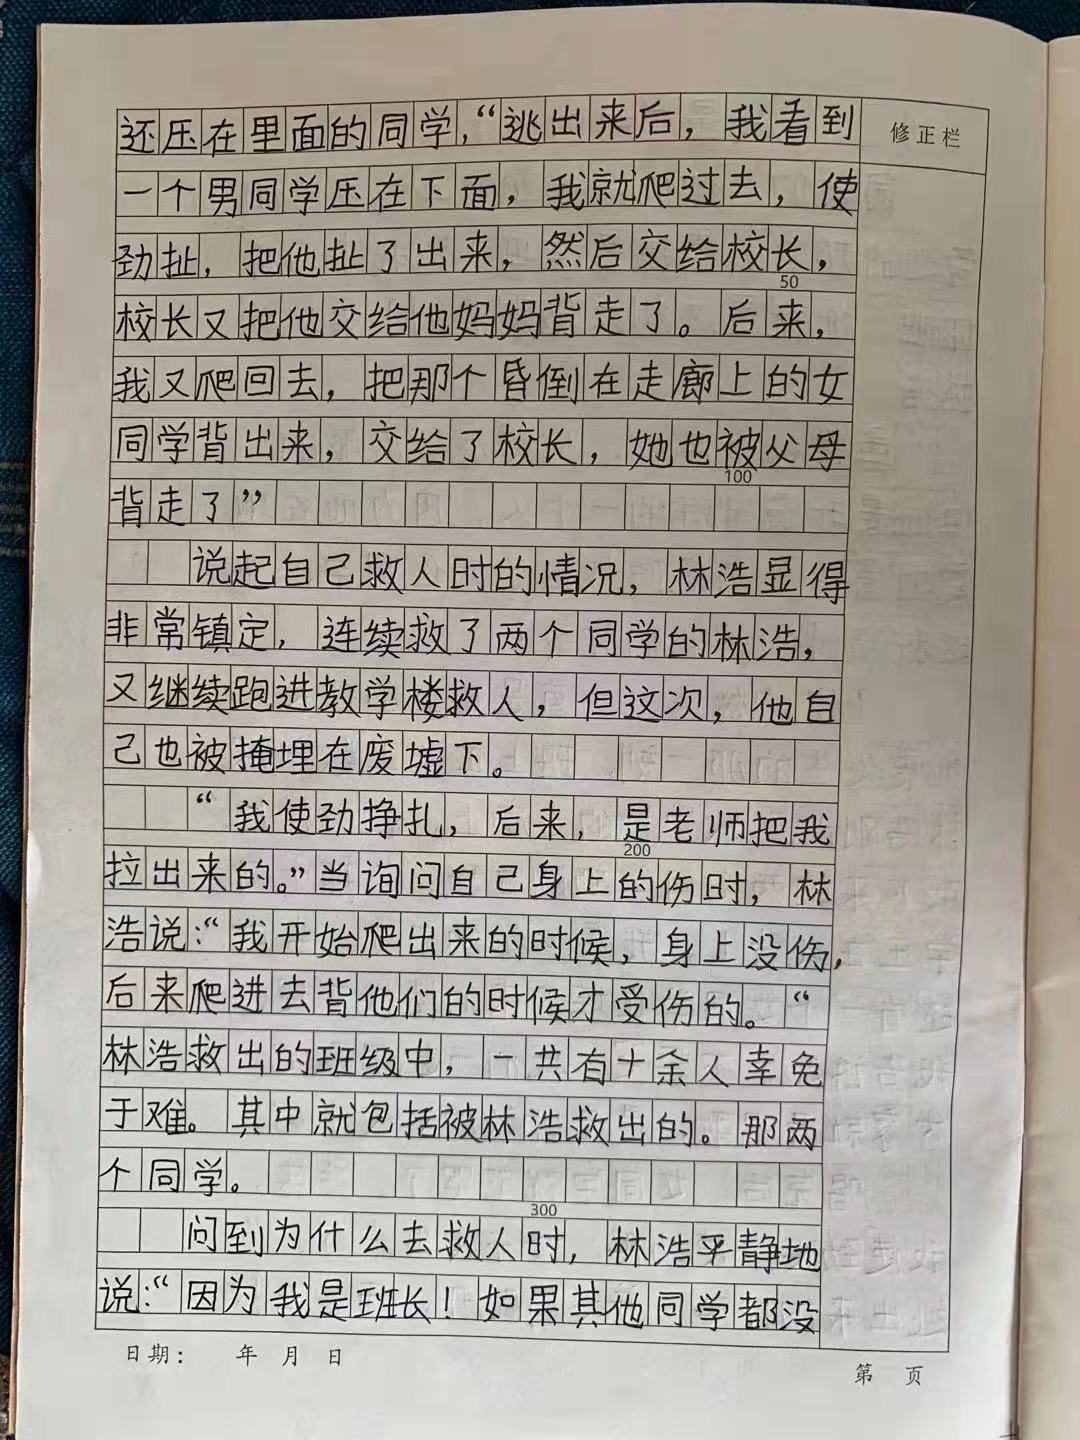 还压在里面的同学，“逃出来后，我看到
修正栏
一个男同学压在下面，我就爬过去，使
劲扯，把他扯了出来，然后交给校长，
50
校长又把他交给他妈妈背走了。后来，
我又爬回去，把那个昏倒在走廊上的女
同学背出来，交给了校长，她也被父母
100
背走了”
说起自己救人时的情况，林浩显得
非常镇定，连续救了两个同学的林浩，
又继续跑进教学楼救人，但这次，他自
己也被掩埋在废墟下。
“我使劲挣扎，后来，是老师把我
200
拉出来的。”当询问自己身上的伤时，林
浩说：“我开始爬出来的时候，身上没伤，
后来爬进去背他们的时候才受伤的。“
林浩救出的班级中，一共有十余人幸免
于难。其中就包括被林浩救出的。那两
个同学。
300
问到为什么去救人时，林浩平静地
说：“因为我是班长！如果其他同学都没
日期： 年 月 日
第 页